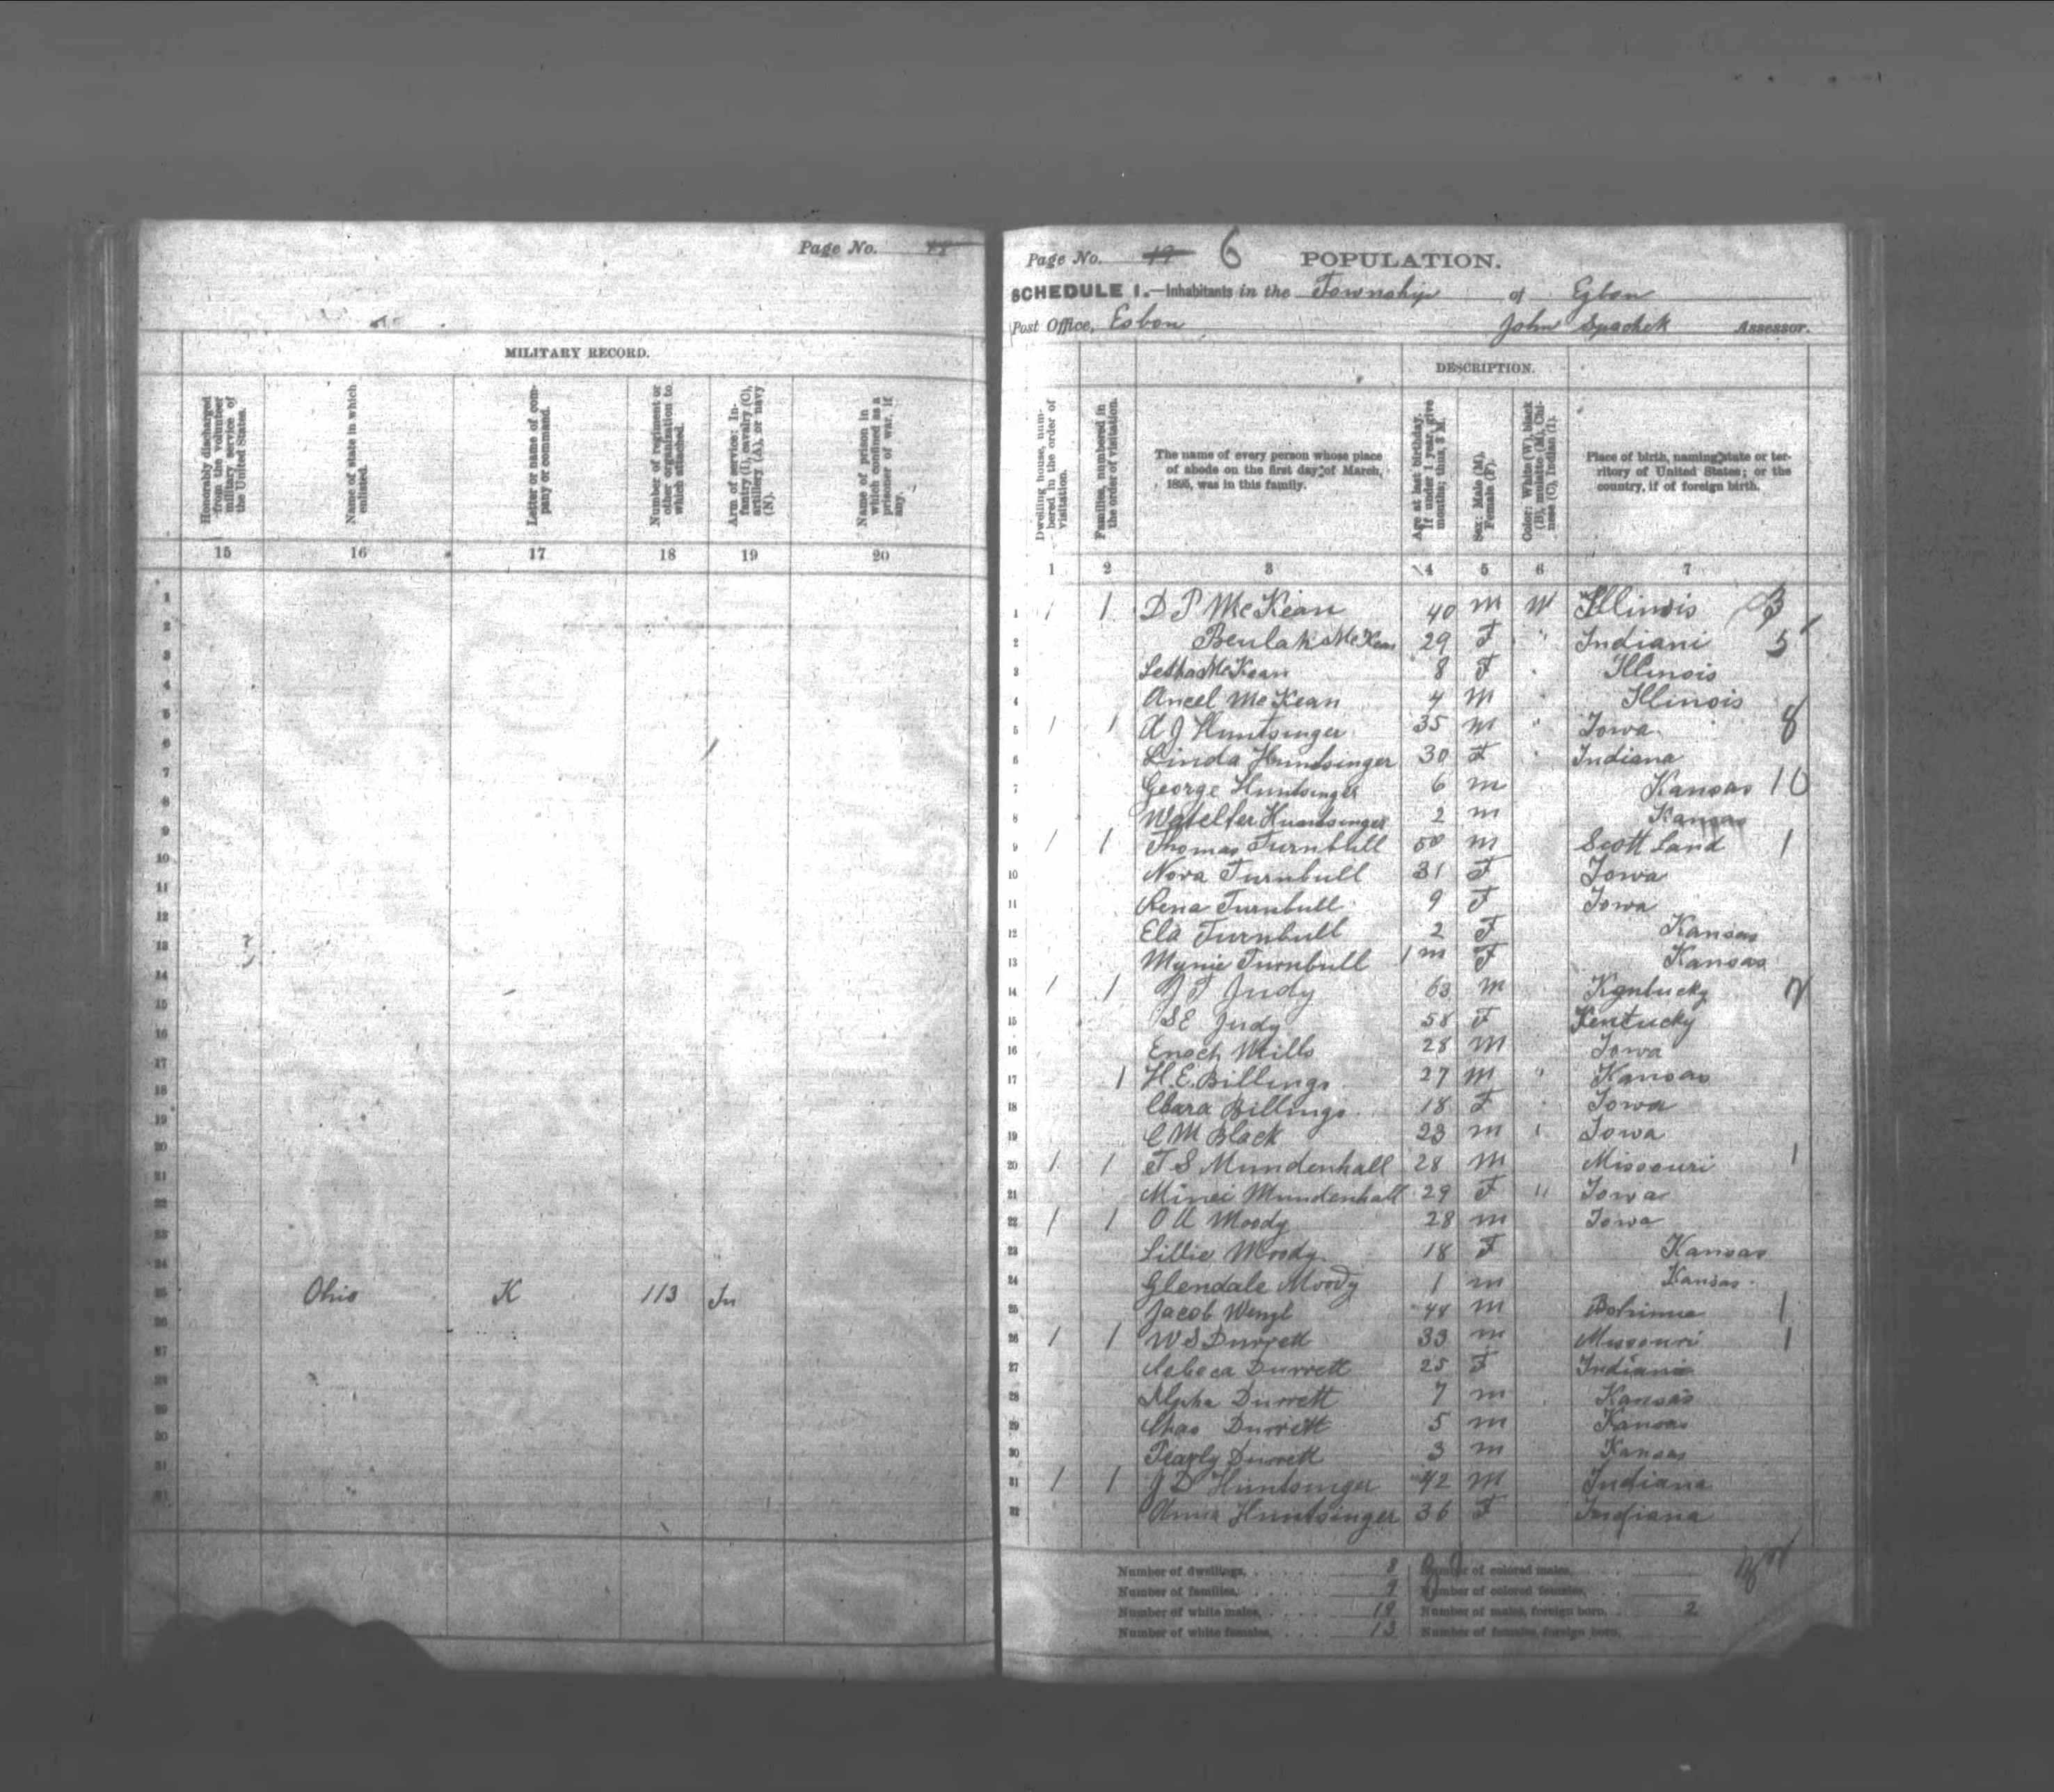 Page No. 48
MILITARY RECORD.
Honorably discharged from the volunteer military service of the United States.
Name of state in which enlisted.
Letter or name of company or command.
Number of regiment or other organization to which attached.
Arm of service: Infantry (I), cavalry (C), artillery (A), or navy (N).
Name of prison in which confined as a prisoner of war, if any.
15 16 17 18 19 20
1
2
3
4
5
6
7
8
9
10
11
12
13
14
15
16
17
18
19
20
21
22
23
24
25 Ohio K 113 In
26
27
28
29
30
31
Page No. 49 6 POPULATION.
SCHEDULE 1.—Inhabitants in the Township of Esbon
Post Office, Esbon John Spachek Assessor.
DESCRIPTION.
Dwelling house, numbered in the order of visitation.
Families, numbered in the order of visitation.
The name of every person whose place of abode on the first day of March, 1895, was in this family.
Age at last birthday. If under 1 year, give months; thus, 3 M.
Sex: Male (M), Female (F).
Color: White (W), black (B), mulatto (M), Chinese (C), Indian (I).
Place of birth, naming state or territory of United States; or the country, if of foreign birth.
1 2 3 4 5 6 7
1 1 1 D P McKean 40 m W Illinois 3
2 Beulah McKean 29 F " Indiani 5
3 Letha McKean 8 F Illinois
4 Ancel McKean 4 m Illinois
5 1 1 A J Huntsinger 35 m " Iowa 8
6 Linda Huntsinger 30 F Indiana
7 George Huntsinger 6 m Kansas 10
8 Huntsinger 2 m Kansas
9 1 1 Thomas Turnbull 50 m Scott Land 1
10 Nora Turnbull 31 F Iowa
11 Rena Turnbull 9 F Iowa
12 Ela Turnbull 2 F Kansas
13 Mynie Turnbull 1 m F Kansas
14 1 1 J T Judy 63 m Kentucky 2
15 S E Judy 58 F Kentucky
16 Enoch Mills 28 m Iowa
17 1 H. E. Billings 27 m " Kansas
18 Clara Billings 18 F Iowa
19 C M Black 23 m Iowa
20 1 1 T S Mundenhall 28 m Missouri 1
21 Minei Mundenhall 29 F " Iowa
22 1 1 O A Moody 28 m Iowa
23 Lillie Moody 18 F Kansas
24 Glendale Moody 1 m Kansas
25 Jacob Wenzl 48 m Bohimia 1
26 1 1 W S Durrett 33 m Missouri 1
27 Rebeca Durrett 25 F Indiana
28 Alpha Durrett 7 m Kansas
29 Chas Durrett 5 m Kansas
30 Pearly Durrett 3 m Kansas
31 1 1 J D Huntsinger 42 m Indiana
32 Anna Huntsinger 36 F Indiana
Number of dwellings, 8 Number of colored males,
Number of families, 9 Number of colored females,
Number of white males, 19 Number of males, foreign born, 2
Number of white females, 13 Number of females, foreign born,